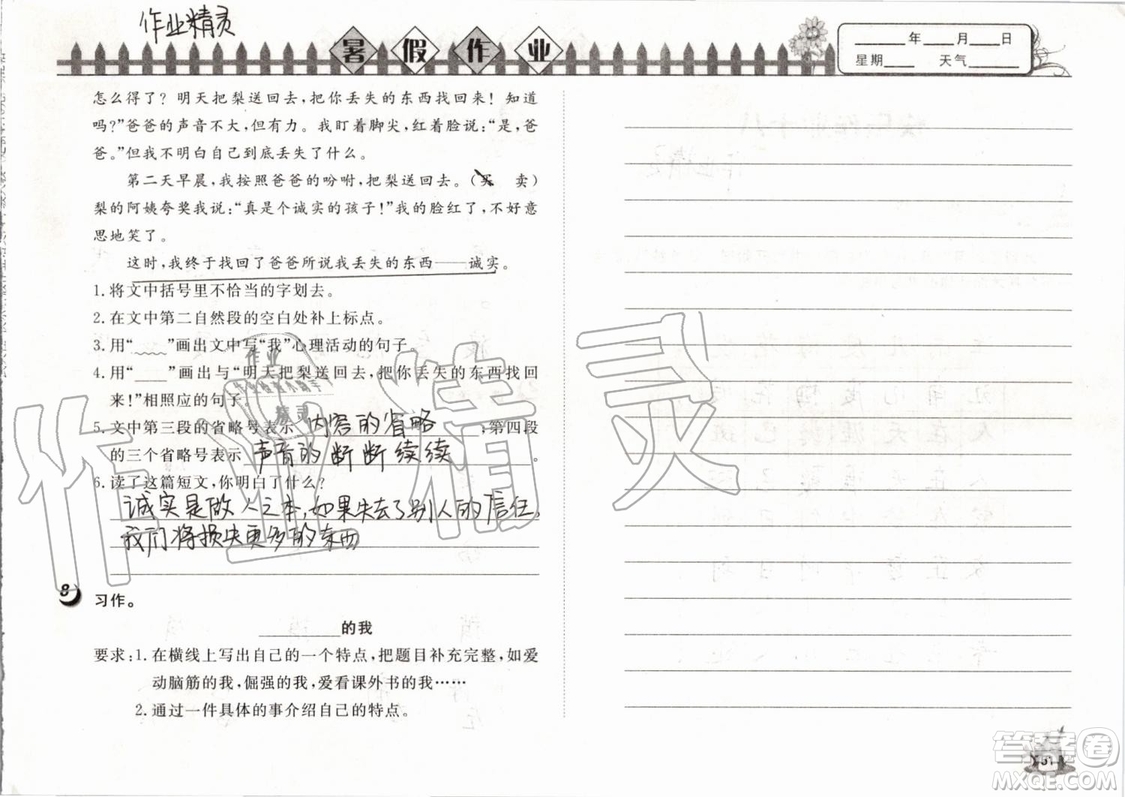 作业精灵
暑假作业
____年____月____日
星期____ 天气______
怎么得了？明天把梨送回去，把你丢失的东西找回来！知道
吗？”爸爸的声音不大，但有力。我盯着脚尖，红着脸说：“是，爸
爸。”但我不明白自己到底丢失了什么。
第二天早晨，我按照爸爸的吩咐，把梨送回去。（买 卖）
梨的阿姨夸奖我说：“真是个诚实的孩子！”我的脸红了，不好意
思地笑了。
这时，我终于找回了爸爸所说我丢失的东西——诚实。
1. 将文中括号里不恰当的字划去。
2. 在文中第二自然段的空白处补上标点。
3. 用“﹏﹏”画出文中写“我”心理活动的句子。
4. 用“____”画出与“明天把梨送回去，把你丢失的东西找回
来！”相照应的句子。
5. 文中第三段的省略号表示 内容的省略 ，第四段
的三个省略号表示 声音的断断续续
6. 读了这篇短文，你明白了什么？
诚实是做人之本，如果失去了别人的信任，
我们将损失更多的东西
8 习作。
________的我
要求：1. 在横线上写出自己的一个特点，把题目补充完整，如爱
动脑筋的我，倔强的我，爱看课外书的我……
2. 通过一件具体的事介绍自己的特点。
作业精灵
答案圈
MXQE.COM